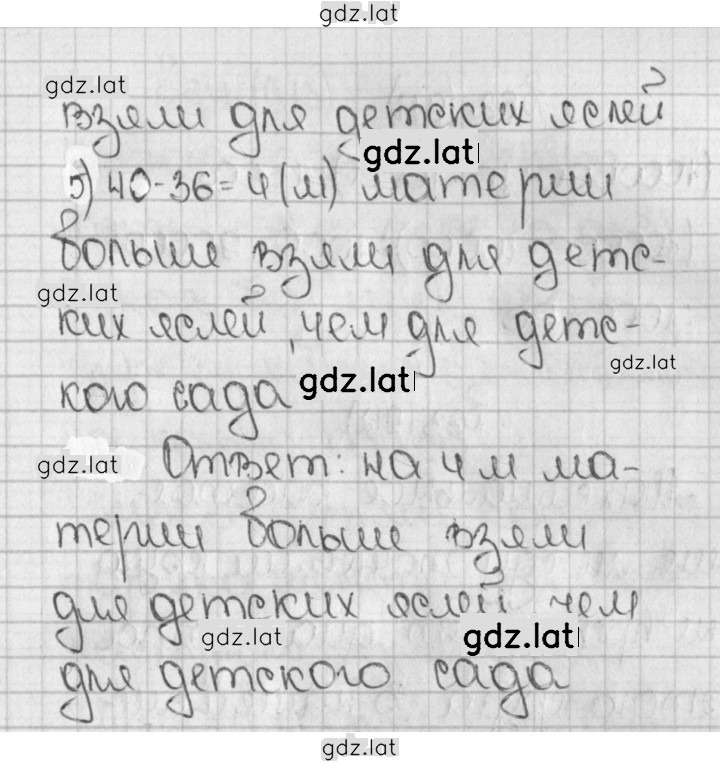 gdz.lat
gdz.lat
взяли для детских яслей
gdz.lat
5) 40-36=4(м) материи
больше взяли для детс-
gdz.lat
ких яслей, чем для детс-
gdz.lat
кого сада gdz.lat
gdz.lat Ответ: на 4 м ма-
терии больше взяли
для детских яслей, чем
gdz.lat gdz.lat
для детского сада
gdz.lat